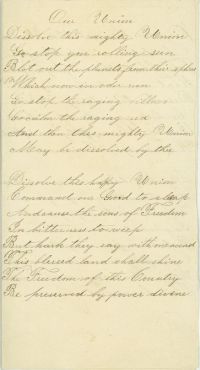 Our Union
Dissolve this mighty Union
Go stop yon rolling sun
Blot out the planets from their sphere
Which now in oder run
Go stop the raging
Go calm the raging
And then this mighty Union
May be dissolved by the

Dissolve this happy Union
Command our God to sleep
And cause the sons of Freedom
In bitterness to weep
But hark they say with one accord
This blessed land shall shine
The Freedom of this Country
Be preserved by power divine